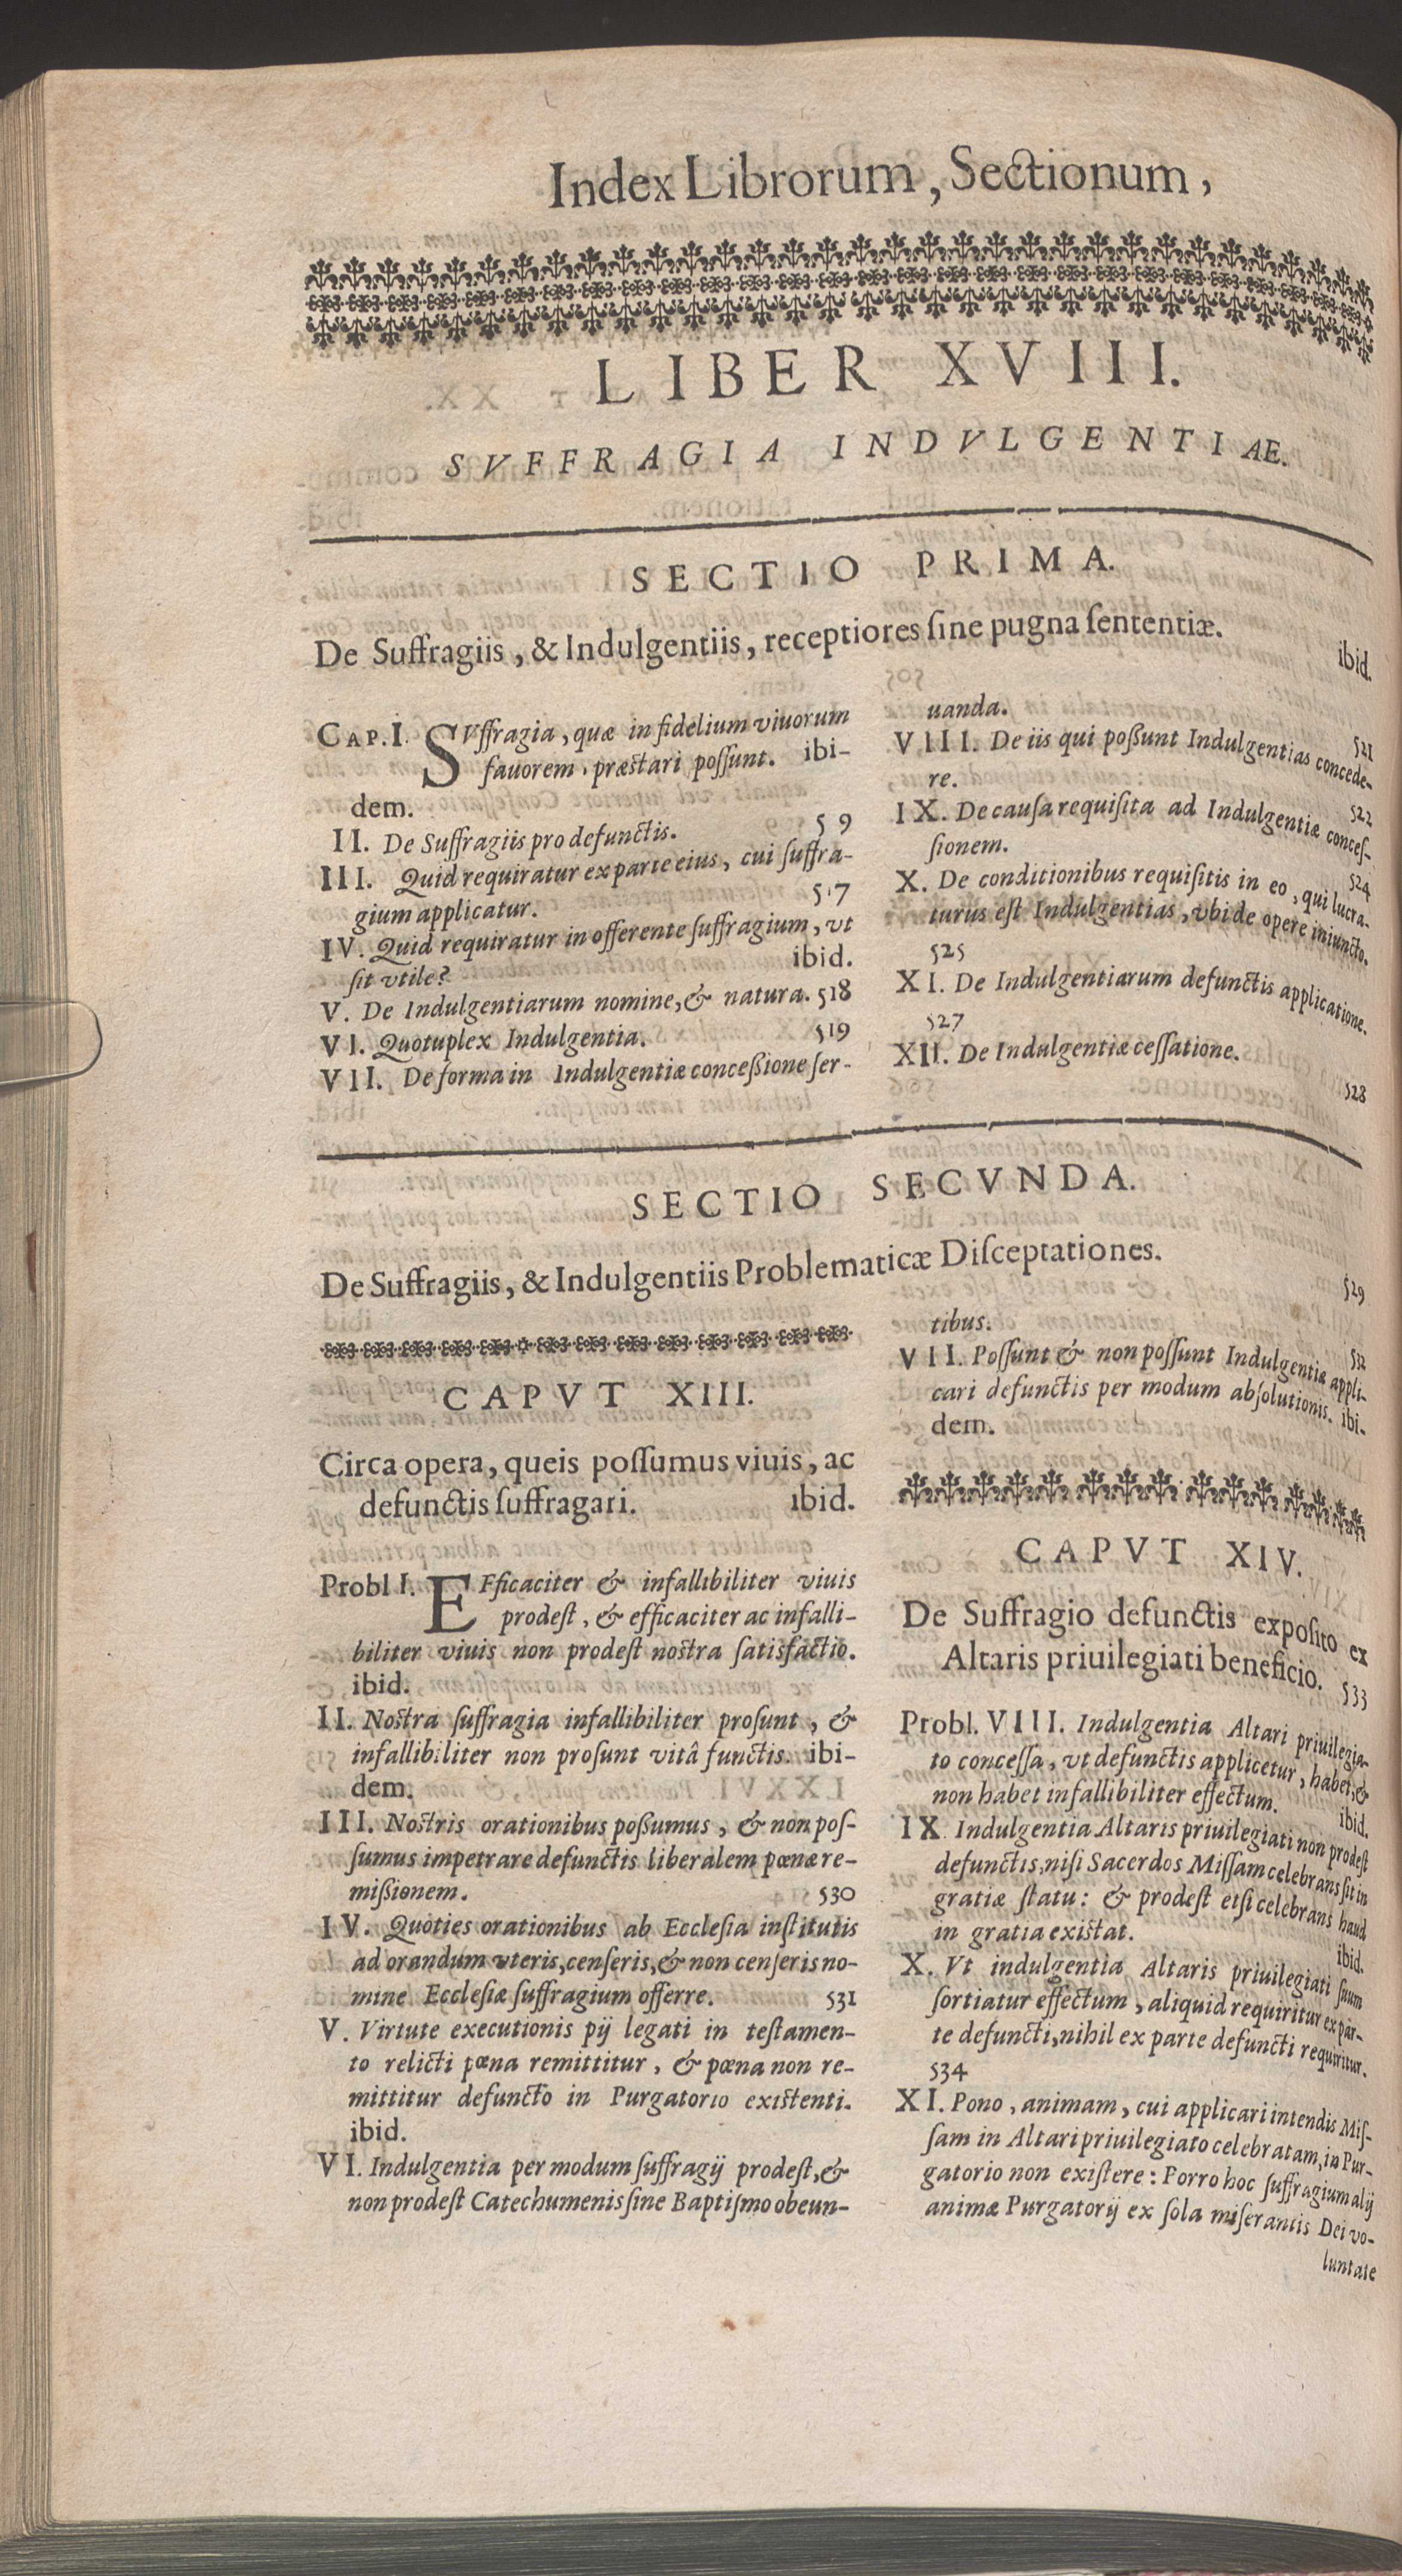 Index Librorum, Sectionum,
LIBER XVIII.
SVFFRAGIA INDVLGENTIAE.
SECTIO PRIMA.
De Suffragiis, & Indulgentiis, receptiores ſine pugna ſententiæ.
ibid.
CAP. I. SVffragia, quæ in fidelium viuorum
fauorem, præſtari poſſunt. ibi-
dem.
II. De Suffragiis pro defunctis. 5 9
III. Quid requiratur ex parte eius, cui ſuffra-
gium applicatur. 517
IV. Quid requiratur in offerente ſuffragium, vt
ſit vtile? ibid.
V. De Indulgentiarum nomine, & natura. 518
VI. Quotuplex Indulgentia. 519
VII. De forma in Indulgentiæ conceßione ſer-
uanda. 521
VIII. De iis qui poßunt Indulgentias concede-
re. 522
IX. De cauſa requiſita ad Indulgentiæ conceſ-
ſionem. 524
X. De conditionibus requiſitis in eo, qui lucra-
turus eſt Indulgentias, vbi de opere iniuncto.
525
XI. De Indulgentiarum defunctis applicatione.
527
XII. De Indulgentiæ ceſſatione.
528
SECTIO SECVNDA.
De Suffragiis, & Indulgentiis Problematicæ Diſceptationes.
529
CAPVT XIII.
Circa opera, queis poſſumus viuis, ac
defunctis ſuffragari. ibid.
Probl I. EFficaciter & infallibiliter viuis
prodeſt, & efficaciter ac infalli-
biliter viuis non prodeſt noſtra ſatisfactio.
ibid.
II. Noſtra ſuffragia infallibiliter proſunt, &
infallibiliter non proſunt vitâ functis. ibi-
dem.
III. Noſtris orationibus poßumus, & non poſ-
ſumus impetrare defunctis liberalem pœnæ re-
mißionem. 530
IV. Quoties orationibus ab Eccleſia inſtitutis
ad orandum vteris, cenſeris, & non cenſeris no-
mine Eccleſiæ ſuffragium offerre. 531
V. Virtute executionis pij legati in teſtamen-
to relicti pœna remittitur, & pœna non re-
mittitur defuncto in Purgatorio exiſtenti.
ibid.
VI. Indulgentia per modum ſuffragij prodeſt, &
non prodeſt Catechumenis ſine Baptiſmo obeun-
tibus. 532
VII. Poſſunt & non poſſunt Indulgentiæ appli-
cari defunctis per modum abſolutionis. ibi-
dem.
CAPVT XIV.
De Suffragio defunctis expoſito ex
Altaris priuilegiati beneficio. 533
Probl. VIII. Indulgentia Altari priuilegia-
to conceſſa, vt defunctis applicetur, habet, &
non habet infallibiliter effectum. ibid.
IX. Indulgentia Altaris priuilegiati non prodeſt
defunctis, niſi Sacerdos Miſſam celebrans ſit in
gratiæ ſtatu: & prodeſt etſi celebrans haud
in gratia exiſtat. ibid.
X. Vt indulgentia Altaris priuilegiati ſuum
ſortiatur effectum, aliquid requiritur ex par-
te defuncti, nihil ex parte defuncti requiritur.
534
XI. Pono, animam, cui applicari intendis Miſ-
ſam in Altari priuilegiato celebratam, in Pur-
gatorio non exiſtere: Porro hoc ſuffragium alij
animæ Purgatorij ex ſola miſerantis Dei vo-
luntate